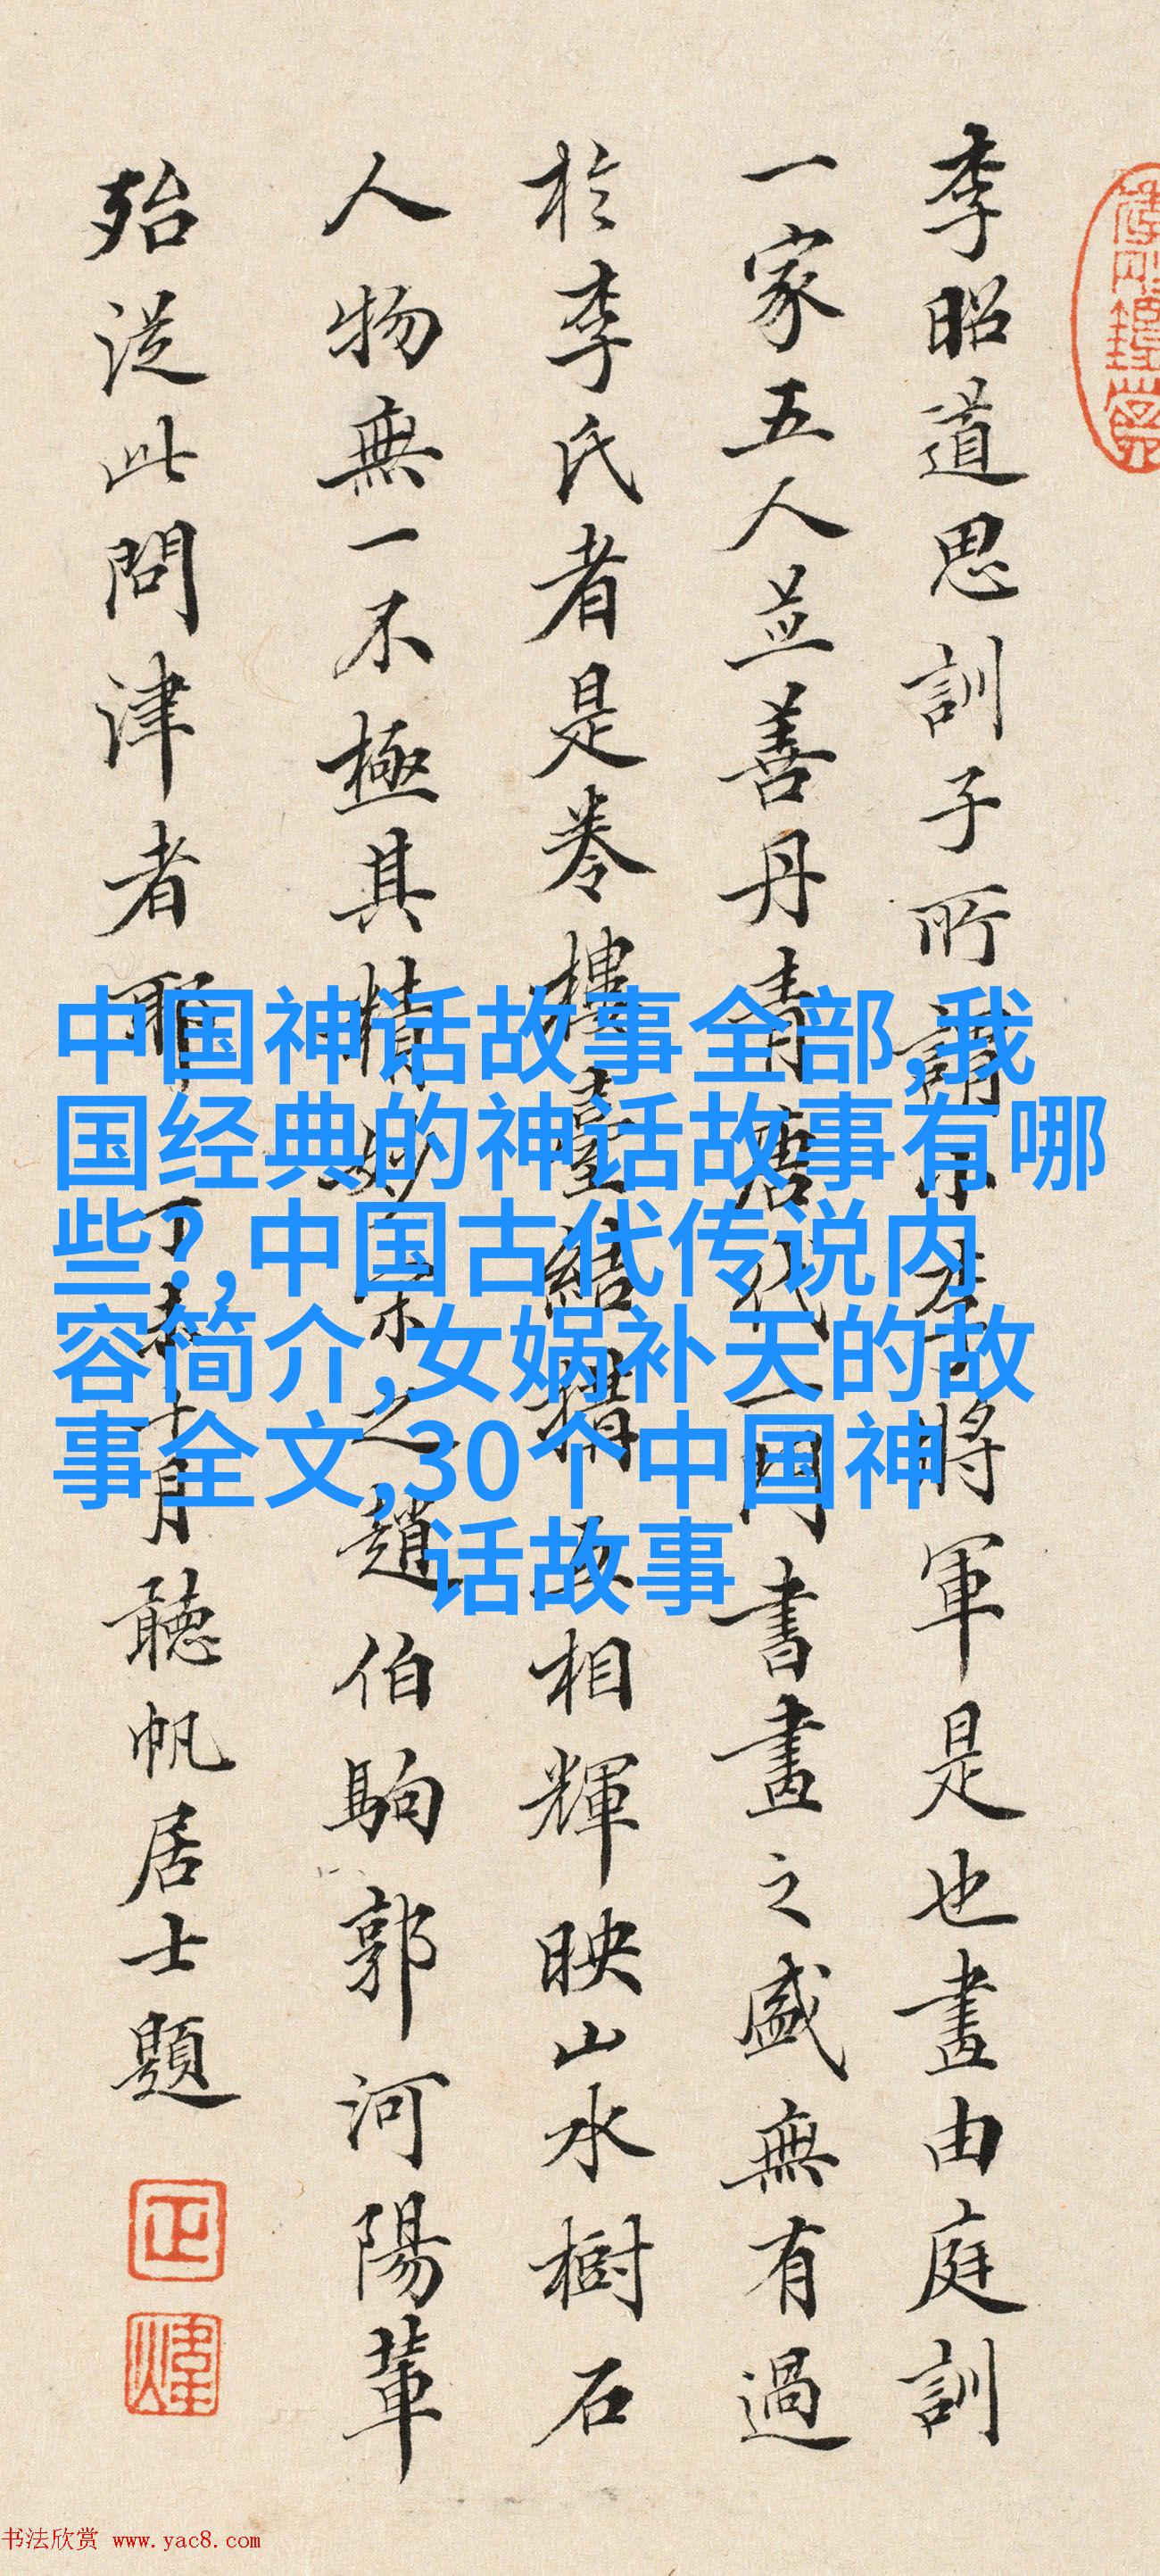 李昭道思訓子所謂小李將軍是也畫由庭訓
一家五人並善丹青唐代一門書畫之盛無有過
於李氏者是卷樓臺結構互相輝映山水樹石
人物無一不極其精妙宋之趙伯駒郭河陽輩
殆從此問津者耶丁未十月聽帆居士題
中国神话故事全部,我
国经典的神话故事有哪
些?,中国古代传说内
容简介,女娲补天的故
事全文,30个中国神
话故事
书法欣赏 www.yac8.com